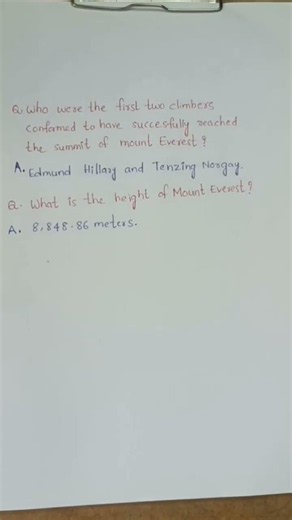 Q. Who were the first two climbers
conformed to have succesfully reached
the summit of mount Everest?
A. Edmund Hillary and Tenzing Norgay.
Q. What is the height of Mount Everest?
A. 8,848.86 meters.